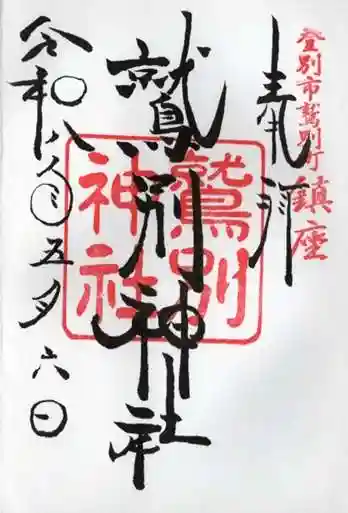 登別市鷲別町 鎮座
奉拝
鷲別神社
鷲別
神社
令和八年五月六日